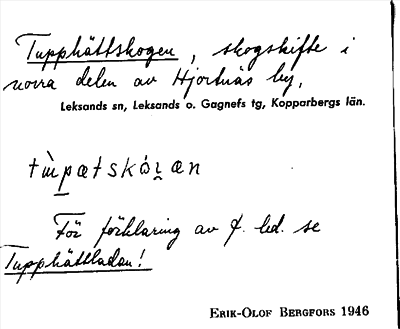 Tupphättskogen, skogskifte i
norra delen av Hjortnäs by,
Leksands sn, Leksands o. Gagnefs tg, Kopparbergs län.
För förklaring av f. led. se
Tupphättladan!
ERIK-OLOF BERGFORS 1946